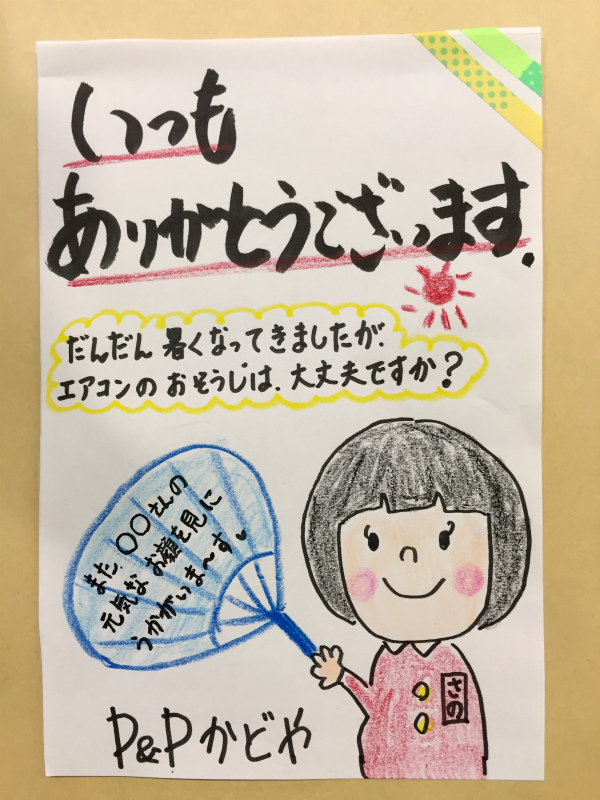 いつも
ありがとうございます.
だんだん 暑くなってきましたが.
エアコンの おそうじは. 大丈夫ですか?
また ○○さんの
元気な お顔を見に
うかがいま〜す♥
さの
P&Pかどや